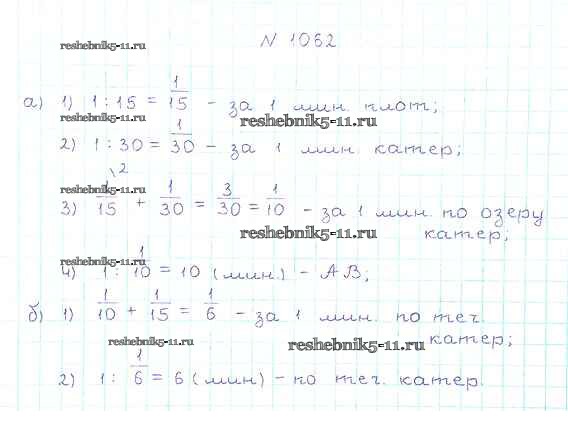 N 1062
reshebnik5-11.ru
а) 1) 1 : 15 = 1/15 - за 1 мин. плот;
reshebnik5-11.ru
reshebnik5-11.ru
2) 1 : 30 = 1/30 - за 1 мин. катер;
reshebnik5-11.ru
3) 1\2/15 + 1/30 = 3/30 = 1/10 - за 1 мин. по озеру
reshebnik5-11.ru
катер;
reshebnik5-11.ru
4) 1 : 1/10 = 10 (мин.) - АВ;
б) 1) 1/10 + 1/15 = 1/6 - за 1 мин. по теч.
катер;
reshebnik5-11.ru
reshebnik5-11.ru
2) 1 : 1/6 = 6 (мин) - по теч. катер.